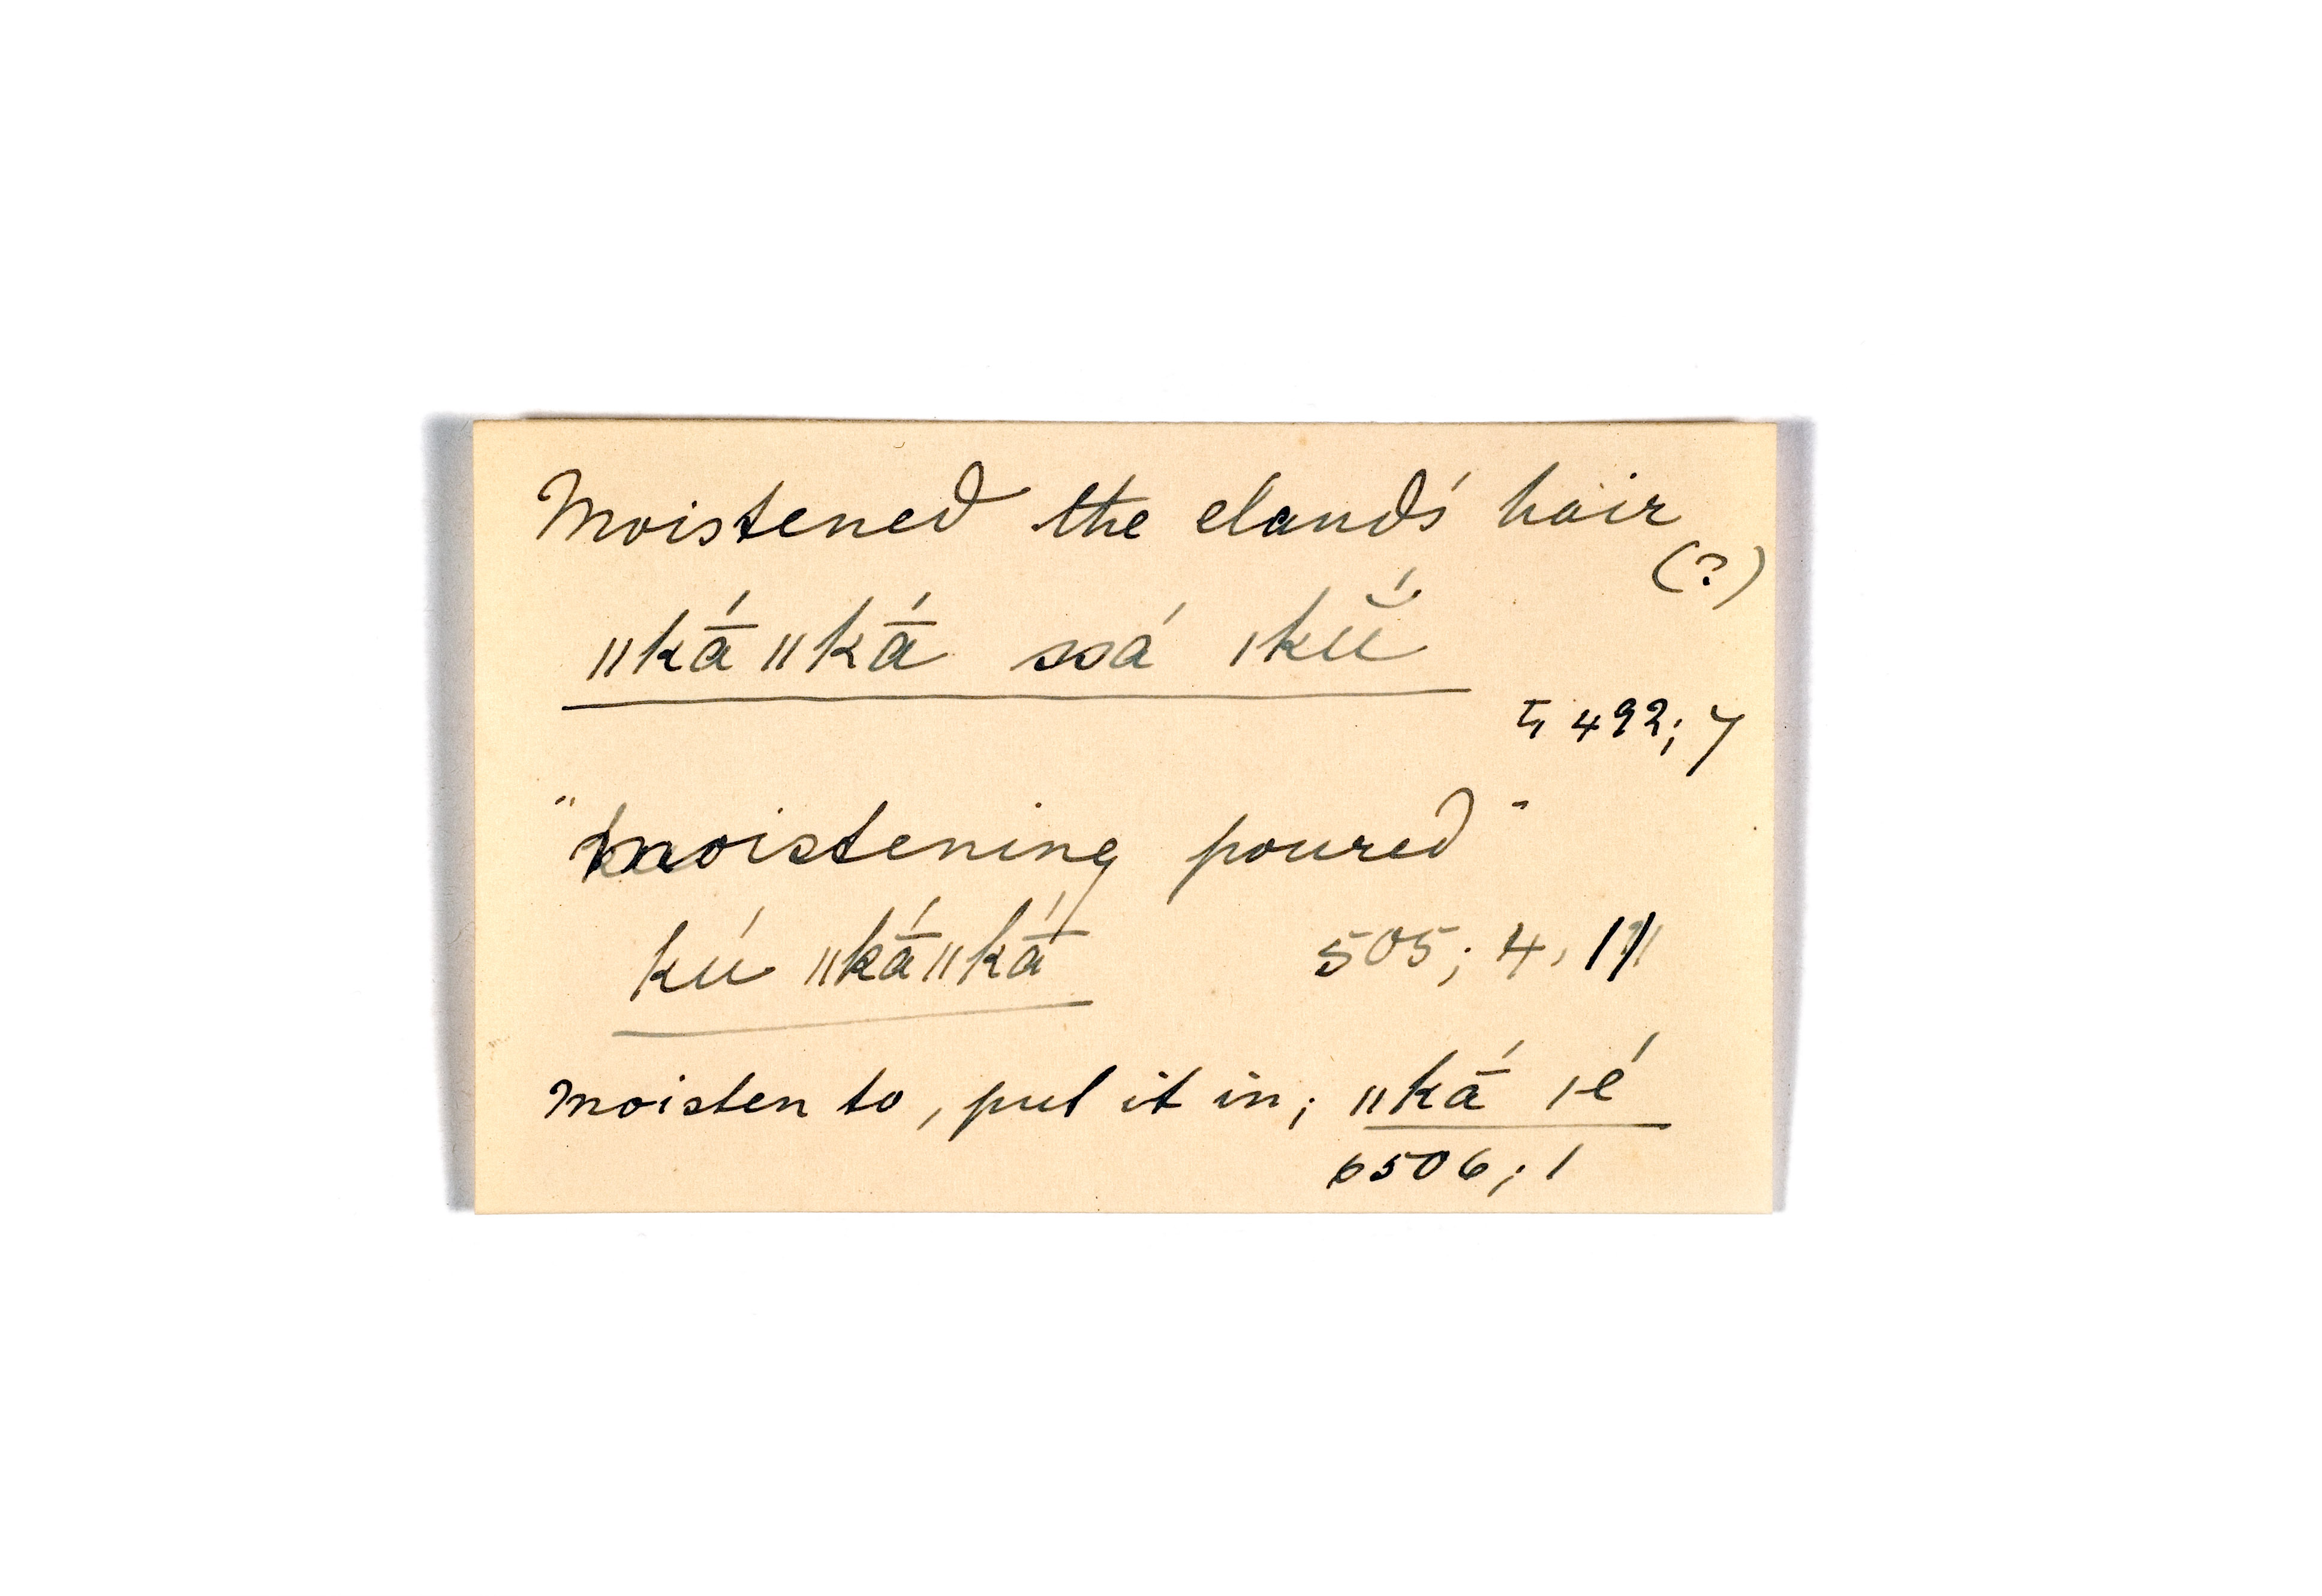 Moistened the eland's hair
(?)
ǁkā́ǁkā́ ssá ǀkŭ́
492; 7
"moistening poured"
kú ǁkā́ǁkā́ 505; 4,
moisten to, put it in; ǁkā́ ǀé
6506; 1